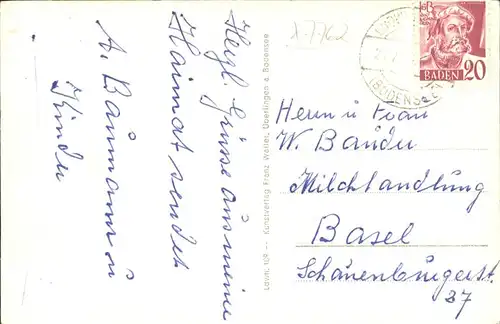 Herzl. Grüsse aus meiner
Heimat sendet
A. Baumann u
Kinder
Lavar. 109 — Kunstverlag Franz Weller, Überlingen a. Bodensee
X-7762
(BODENSEE)
BADEN 20
Herrn u Frau
W. Bauder
Milchhandlung
Basel
Schauenburgerst.
27